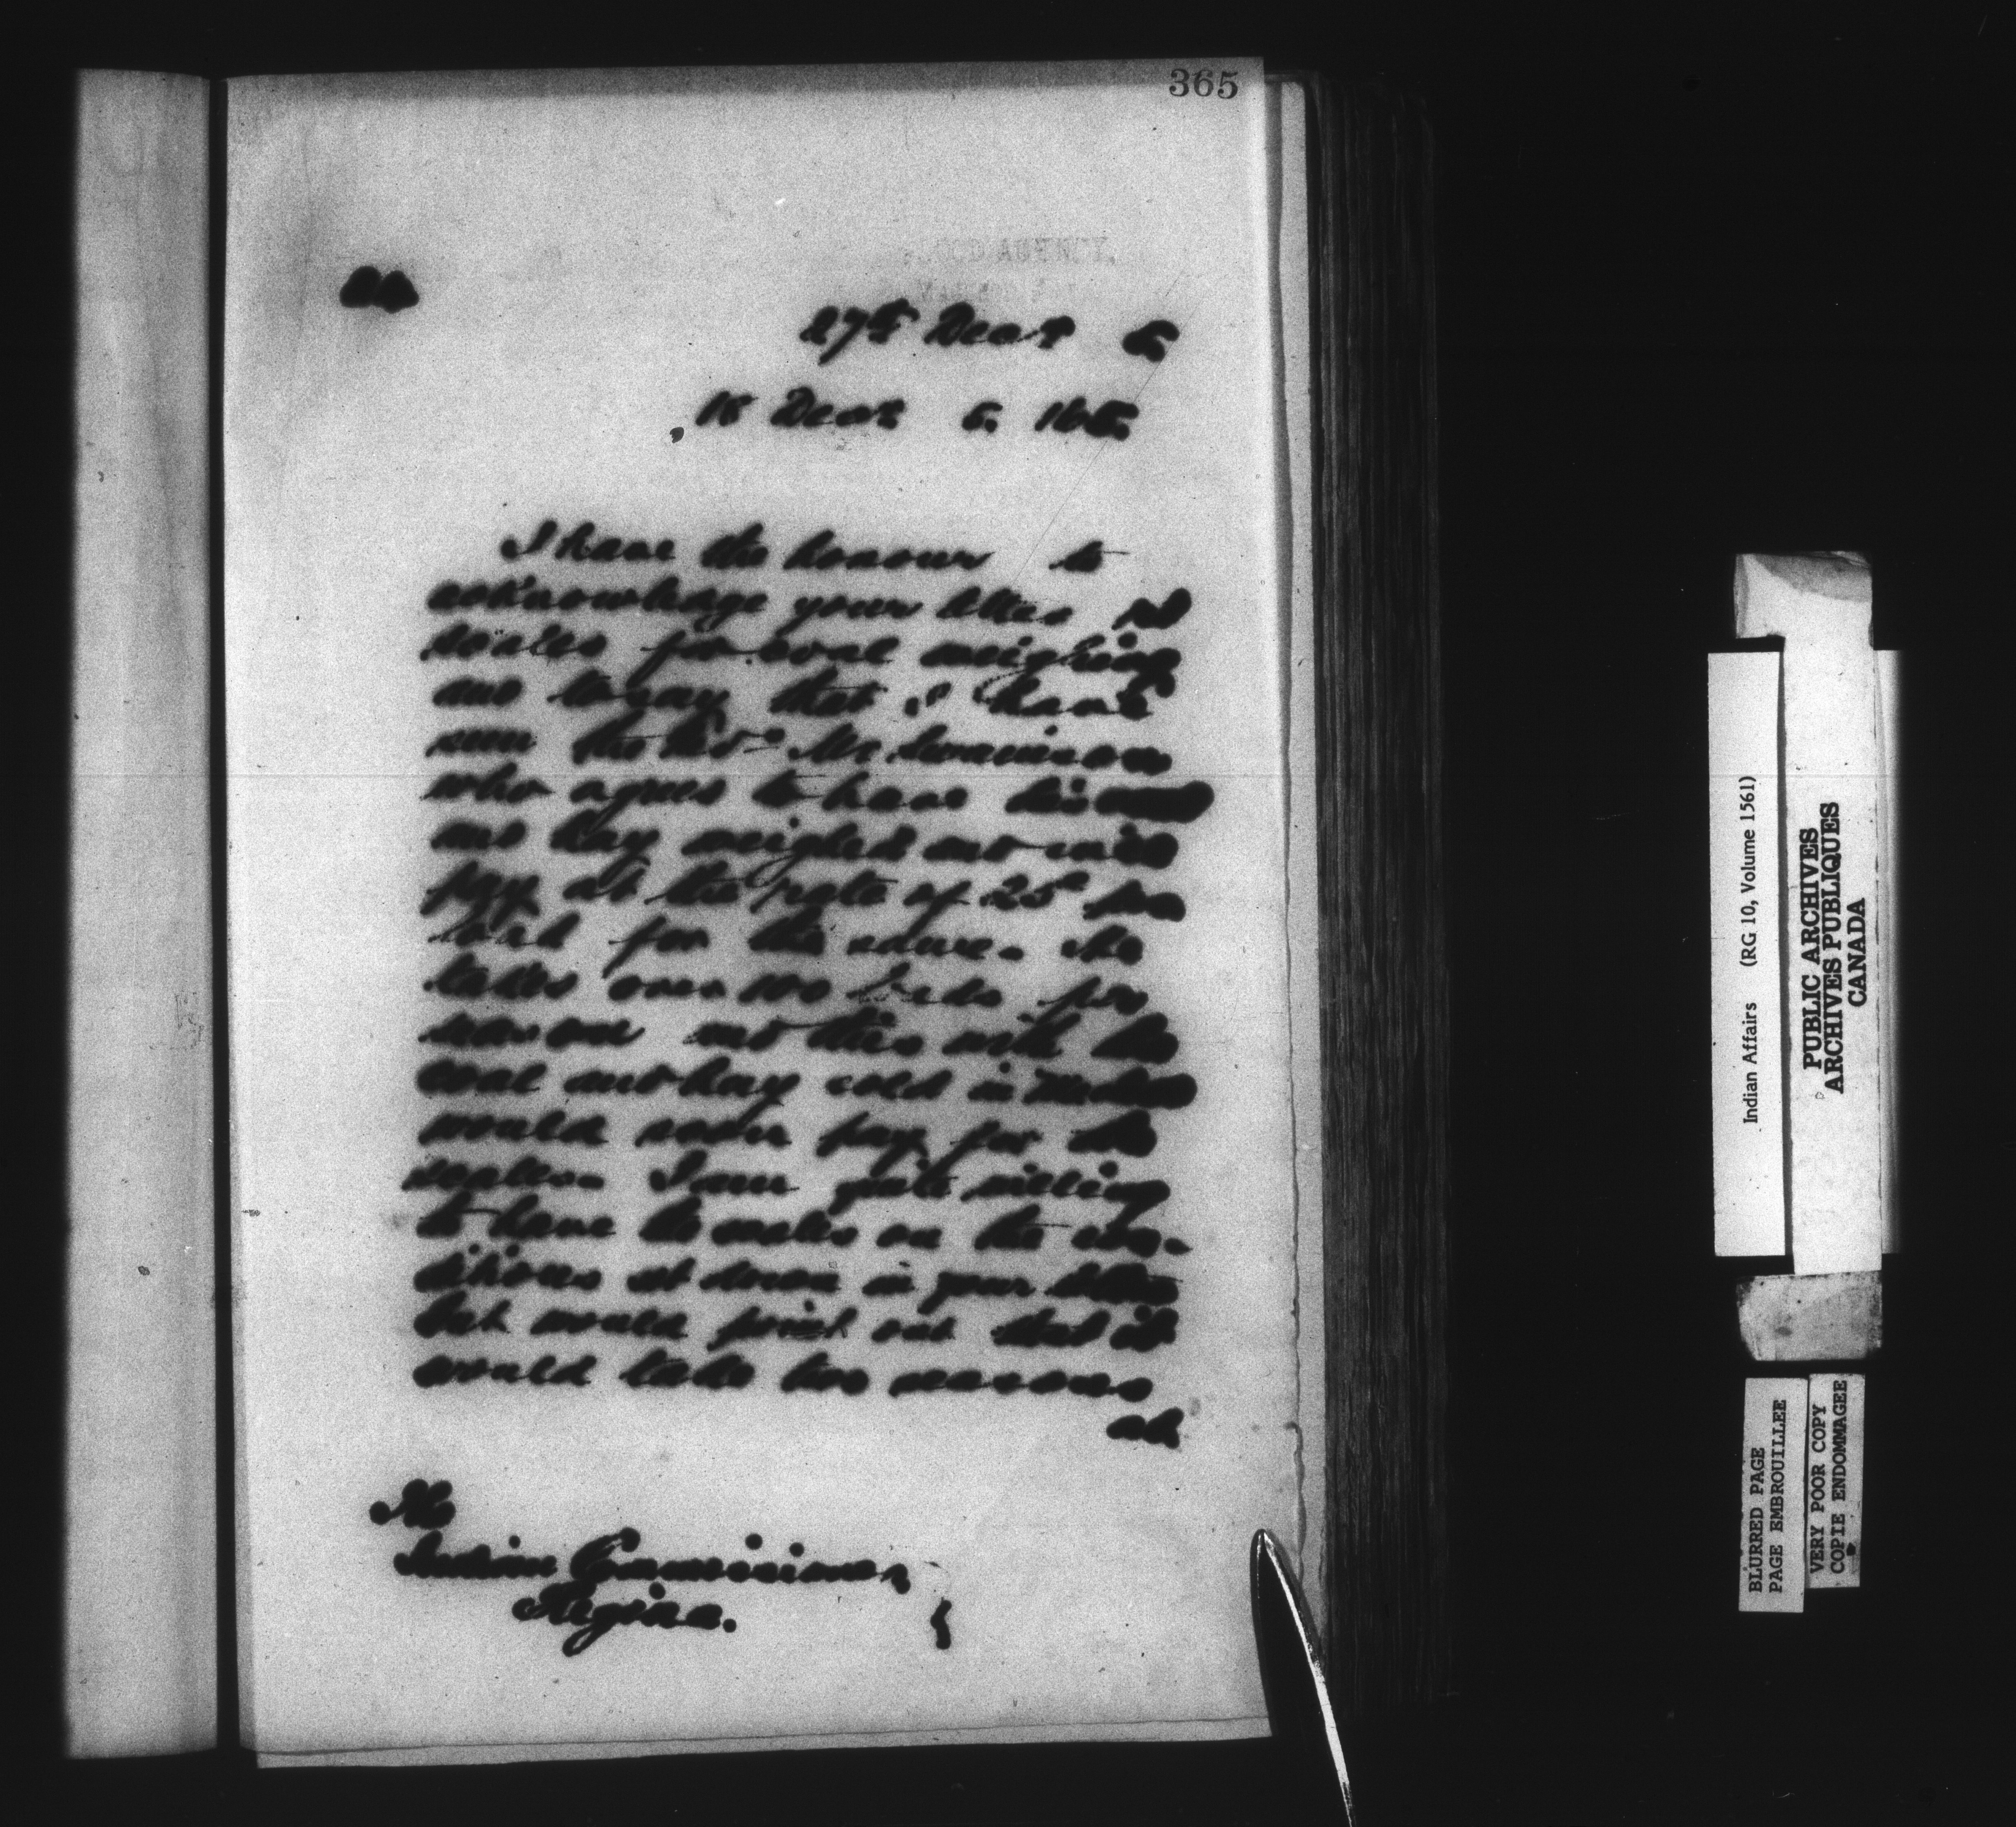 365
BLOOD AGENCY,
27th Decr 6.
18 Decr 6. 166.
I have the honour to
acknowledge your letter
scales for coal weighing
and to say that I have
seen the Revd Mr Swainson
who agrees to have his coal
and hay weighed and will
pay at the rate of 25c per
load for the same. He
takes over 100 loads per
season and this with the
coal and hay sold in
would soon pay for the
scales. I am quite willing
to have the scales on the con-
ditions set down in your letter
but would point out that it
would take two seasons
The
Indian Commissioner
Regina.
Indian Affairs (RG 10, Volume 1561)
PUBLIC ARCHIVES
ARCHIVES PUBLIQUES
CANADA
BLURRED PAGE
PAGE EMBROUILLEE
VERY POOR COPY
COPIE ENDOMMAGEE